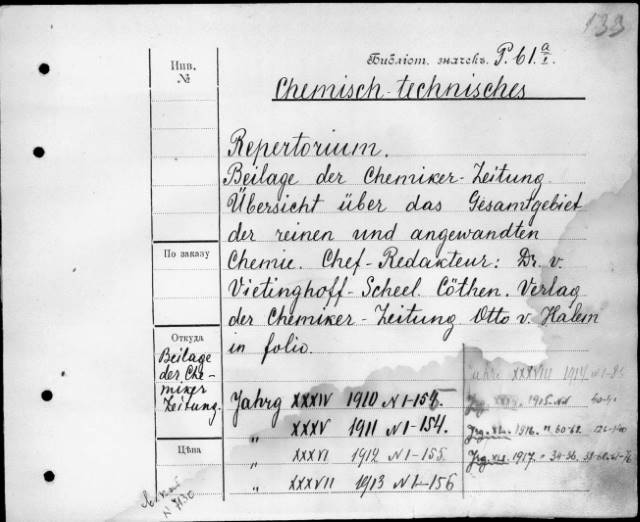 133
Библіот. значекъ. P. 61. a/1.
Инв.
№
Chemisch-technisches
Repertorium.
Beilage der Chemiker-Zeitung
Übersicht über das Gesamtgebiet
der reinen und angewandten
По заказу
Chemie. Chef-Redakteur: Dr. v.
Vietinghoff-Scheel. Cöthen. Verlag
der Chemiker-Zeitung Otto v. Halem
in folio.
Откуда
Beilage
der Che-
miker
Zeitung.
XXXVIII 1914 N 1-
Jahrg XXXIV 1910 N 1-155.
Jrg. 1915.
„ XXXV 1911 N 1-154.
Jrg. 1916. 60-62.
Цѣна
„ XXXVI 1912 N 1-155.
Jrg. 1917. 34-36.
„ XXXVII 1913 N 1-156
N 7130